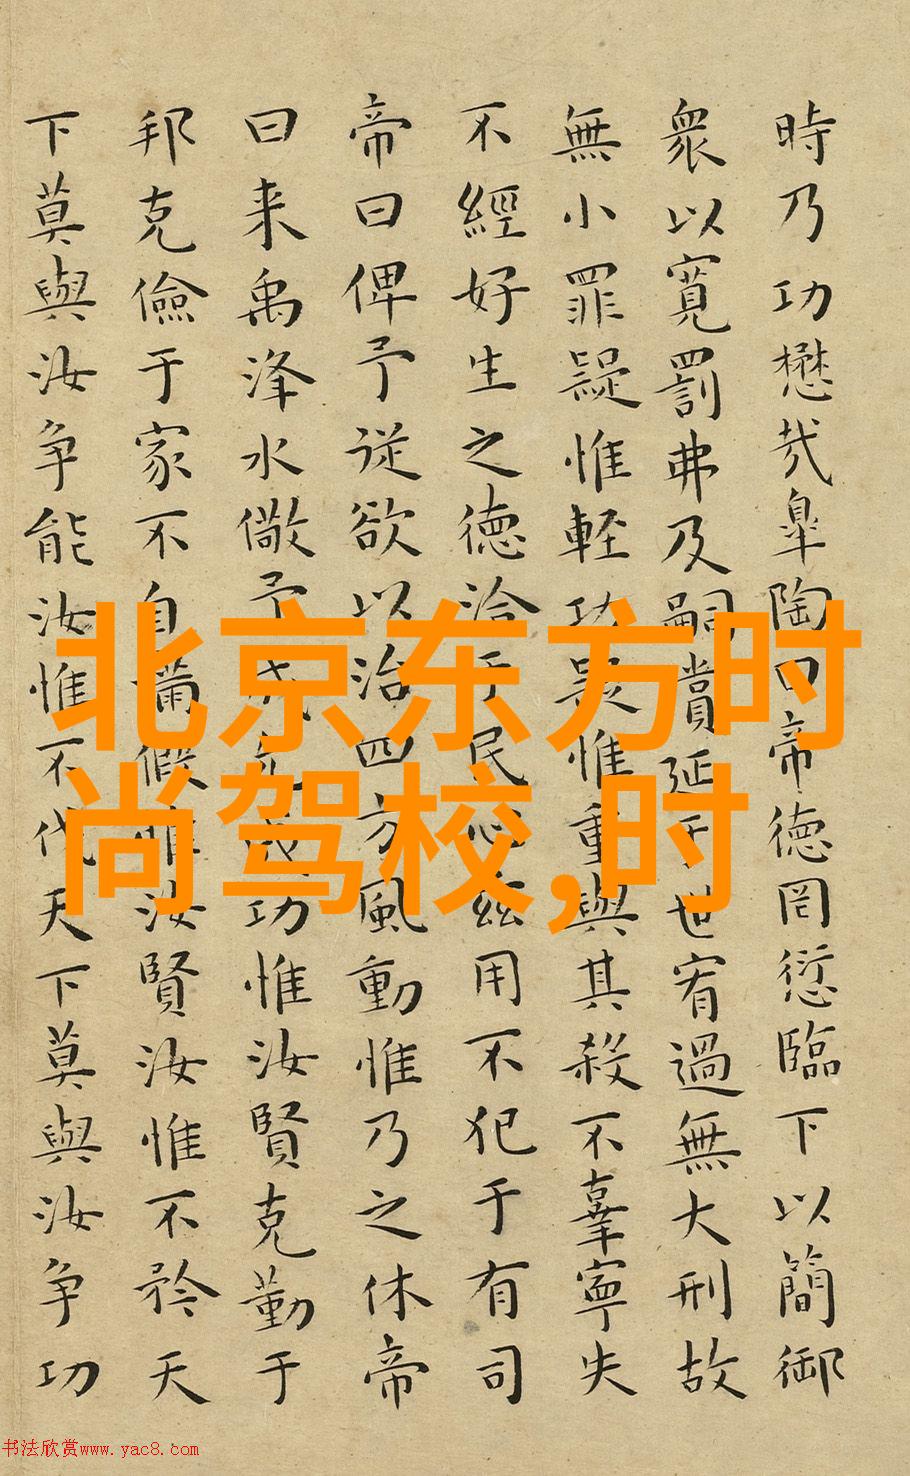 時乃功懋哉皐陶曰帝德罔愆臨下以簡御
衆以寬罰弗及嗣賞延于世宥過無大刑故
無小罪疑惟輕功疑惟重與其殺不辜寧失
不經好生之德洽于民心茲用不犯于有司
帝曰俾予從欲以治四方風動惟乃之休帝
曰来禹洚水儆予成允成功惟汝賢克勤于
邦克儉于家不自滿假惟汝賢汝惟不矜天
下莫與汝争能汝惟不伐天下莫與汝争功
北京东方时
尚驾校,时
书法欣赏www.yac8.com